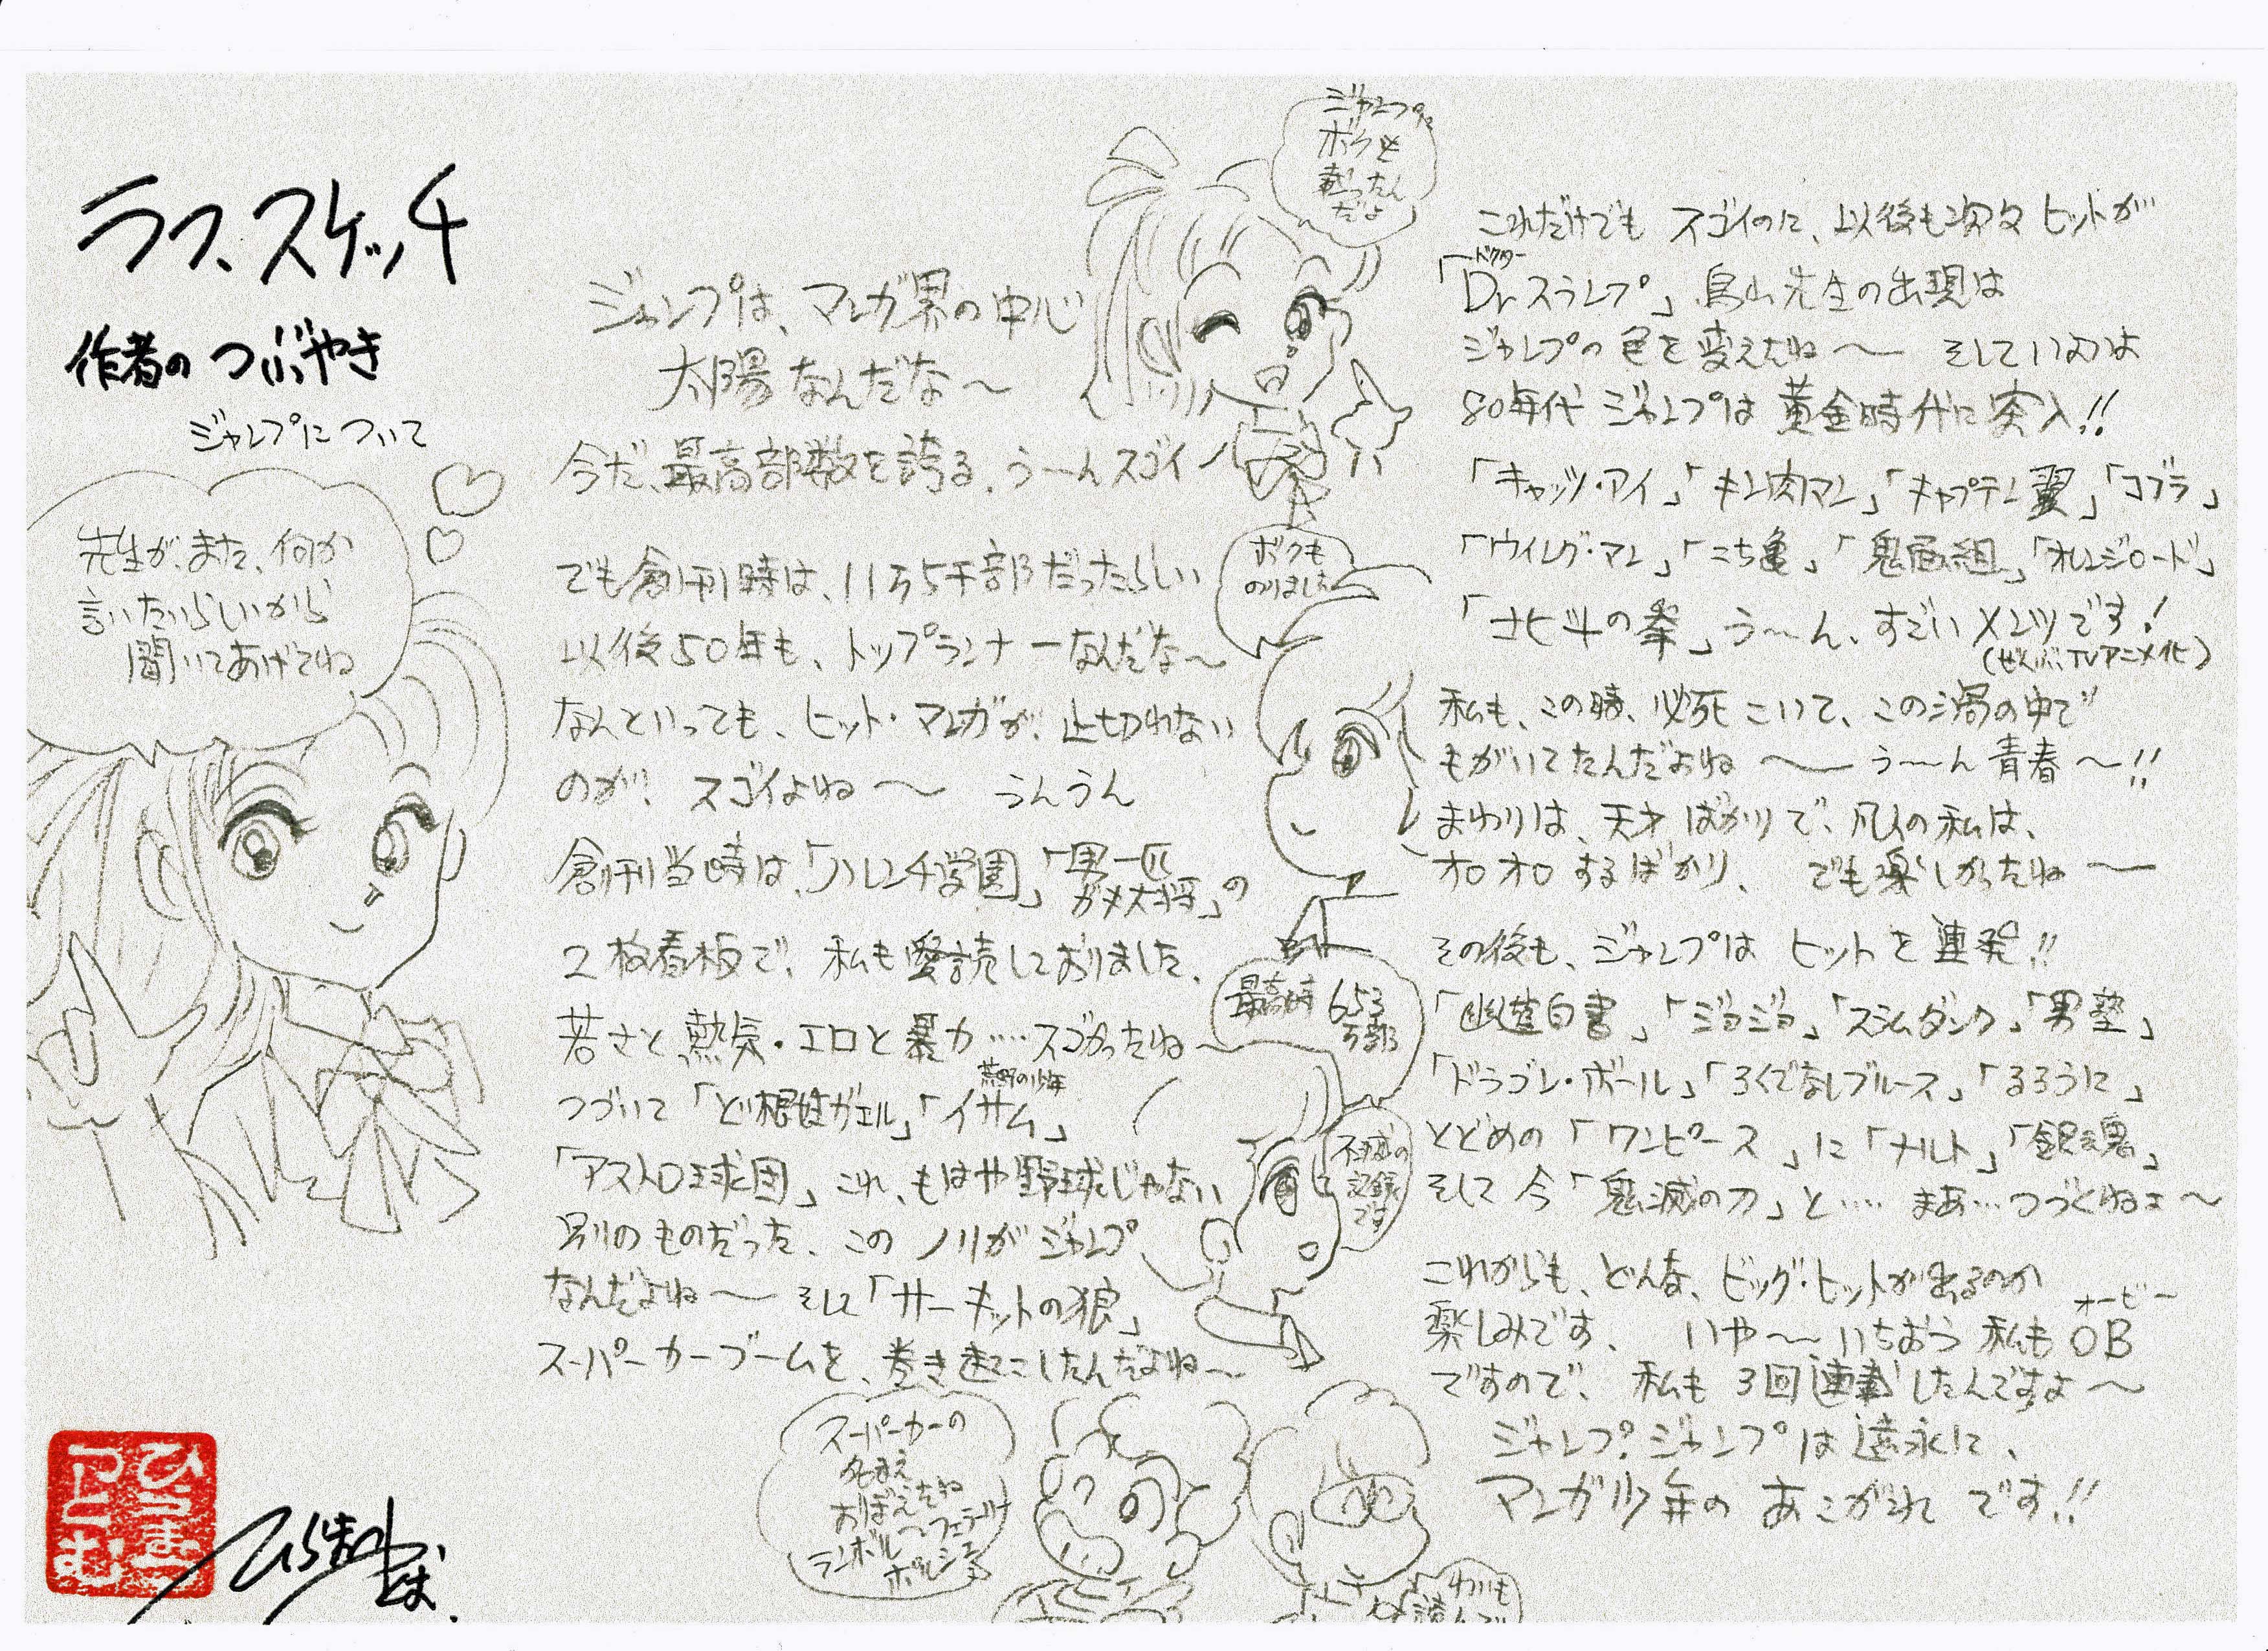 ラフ、スケッチ
作者の つぶやき
ジャンプについて
先生が、また、何か
言いたいらしいから
聞いてあげてね
ジャンプは、マンガ界の中心
太陽 なんだな〜
今だ、最高部数を誇る、う〜んスゴイ
でも創刊時は、11万5千部だったらしい
以後50年も、トップランナーなんだな〜
なんといっても、ヒット・マンガが、止切れない
のが! スゴイよね〜 うんうん
創刊当時は、「ハレンチ学園」「男一匹
ガキ大将」の
2枚看板で、私も愛読しておりました、
若さと、熱気・エロと暴力‥‥スゴかったね〜
つづいて「ど根性ガエル」「荒野の少年
イサム」
「アストロ球団」これ、もはや野球じゃない
別のものだった、このノリがジャンプ
なんだよね〜 そして「サーキットの狼」
スーパーカーブームを、巻き起こしたんだよね〜
ジャンプに
ボクも
載ったん
だよ
ボクも
のりました
最高時 653
万部
不滅の
記録
です
スーパーカーの
名まえ
おぼえたね
ランボルーフェラーリ
ポルシェ
これだけでも スゴイのに、以後も次々 ヒットが…
ドクター
「Drスランプ」鳥山先生の出現は
ジャンプの色を変えたね〜 そしていよいよ
80年代 ジャンプは 黄金時代に突入!!
「キャッツ・アイ」「キン肉マン」「キャプテン翼」「コブラ」
「ウイング・マン」「こち亀」「奇面組」「オレンジロード」
「北斗の拳」う〜ん、すごいメンツです!
(ぜんぶTVアニメ化)
私も、この時、必死こいて、この渦の中で
もがいてたんだよね〜 う〜ん 青春〜!!
まわりは、天才ばかりで、凡人の私は、
オロオロするばかり、 でも楽しかったね〜
その後も、ジャンプは ヒットを連発!!
「幽遊白書」「ジョジョ」「スラムダンク」「男塾」
「ドラゴン・ボール」「ろくでなしブルース」「るろうに」
とどめの「ワンピース」に「ナルト」「銀魂」
そして 今「鬼滅の刃」と‥‥ まあ…つづくねェ〜
これからも、どんな、ビッグ・ヒットが出るのか
楽しみです、 いや〜、いちおう 私も OB
オービー
ですので、 私も 3回連載したんですよ〜
ジャンプ?ジャンプは遠永に、
マンガ少年の あこがれ です!!
ひらまつ
つとむ